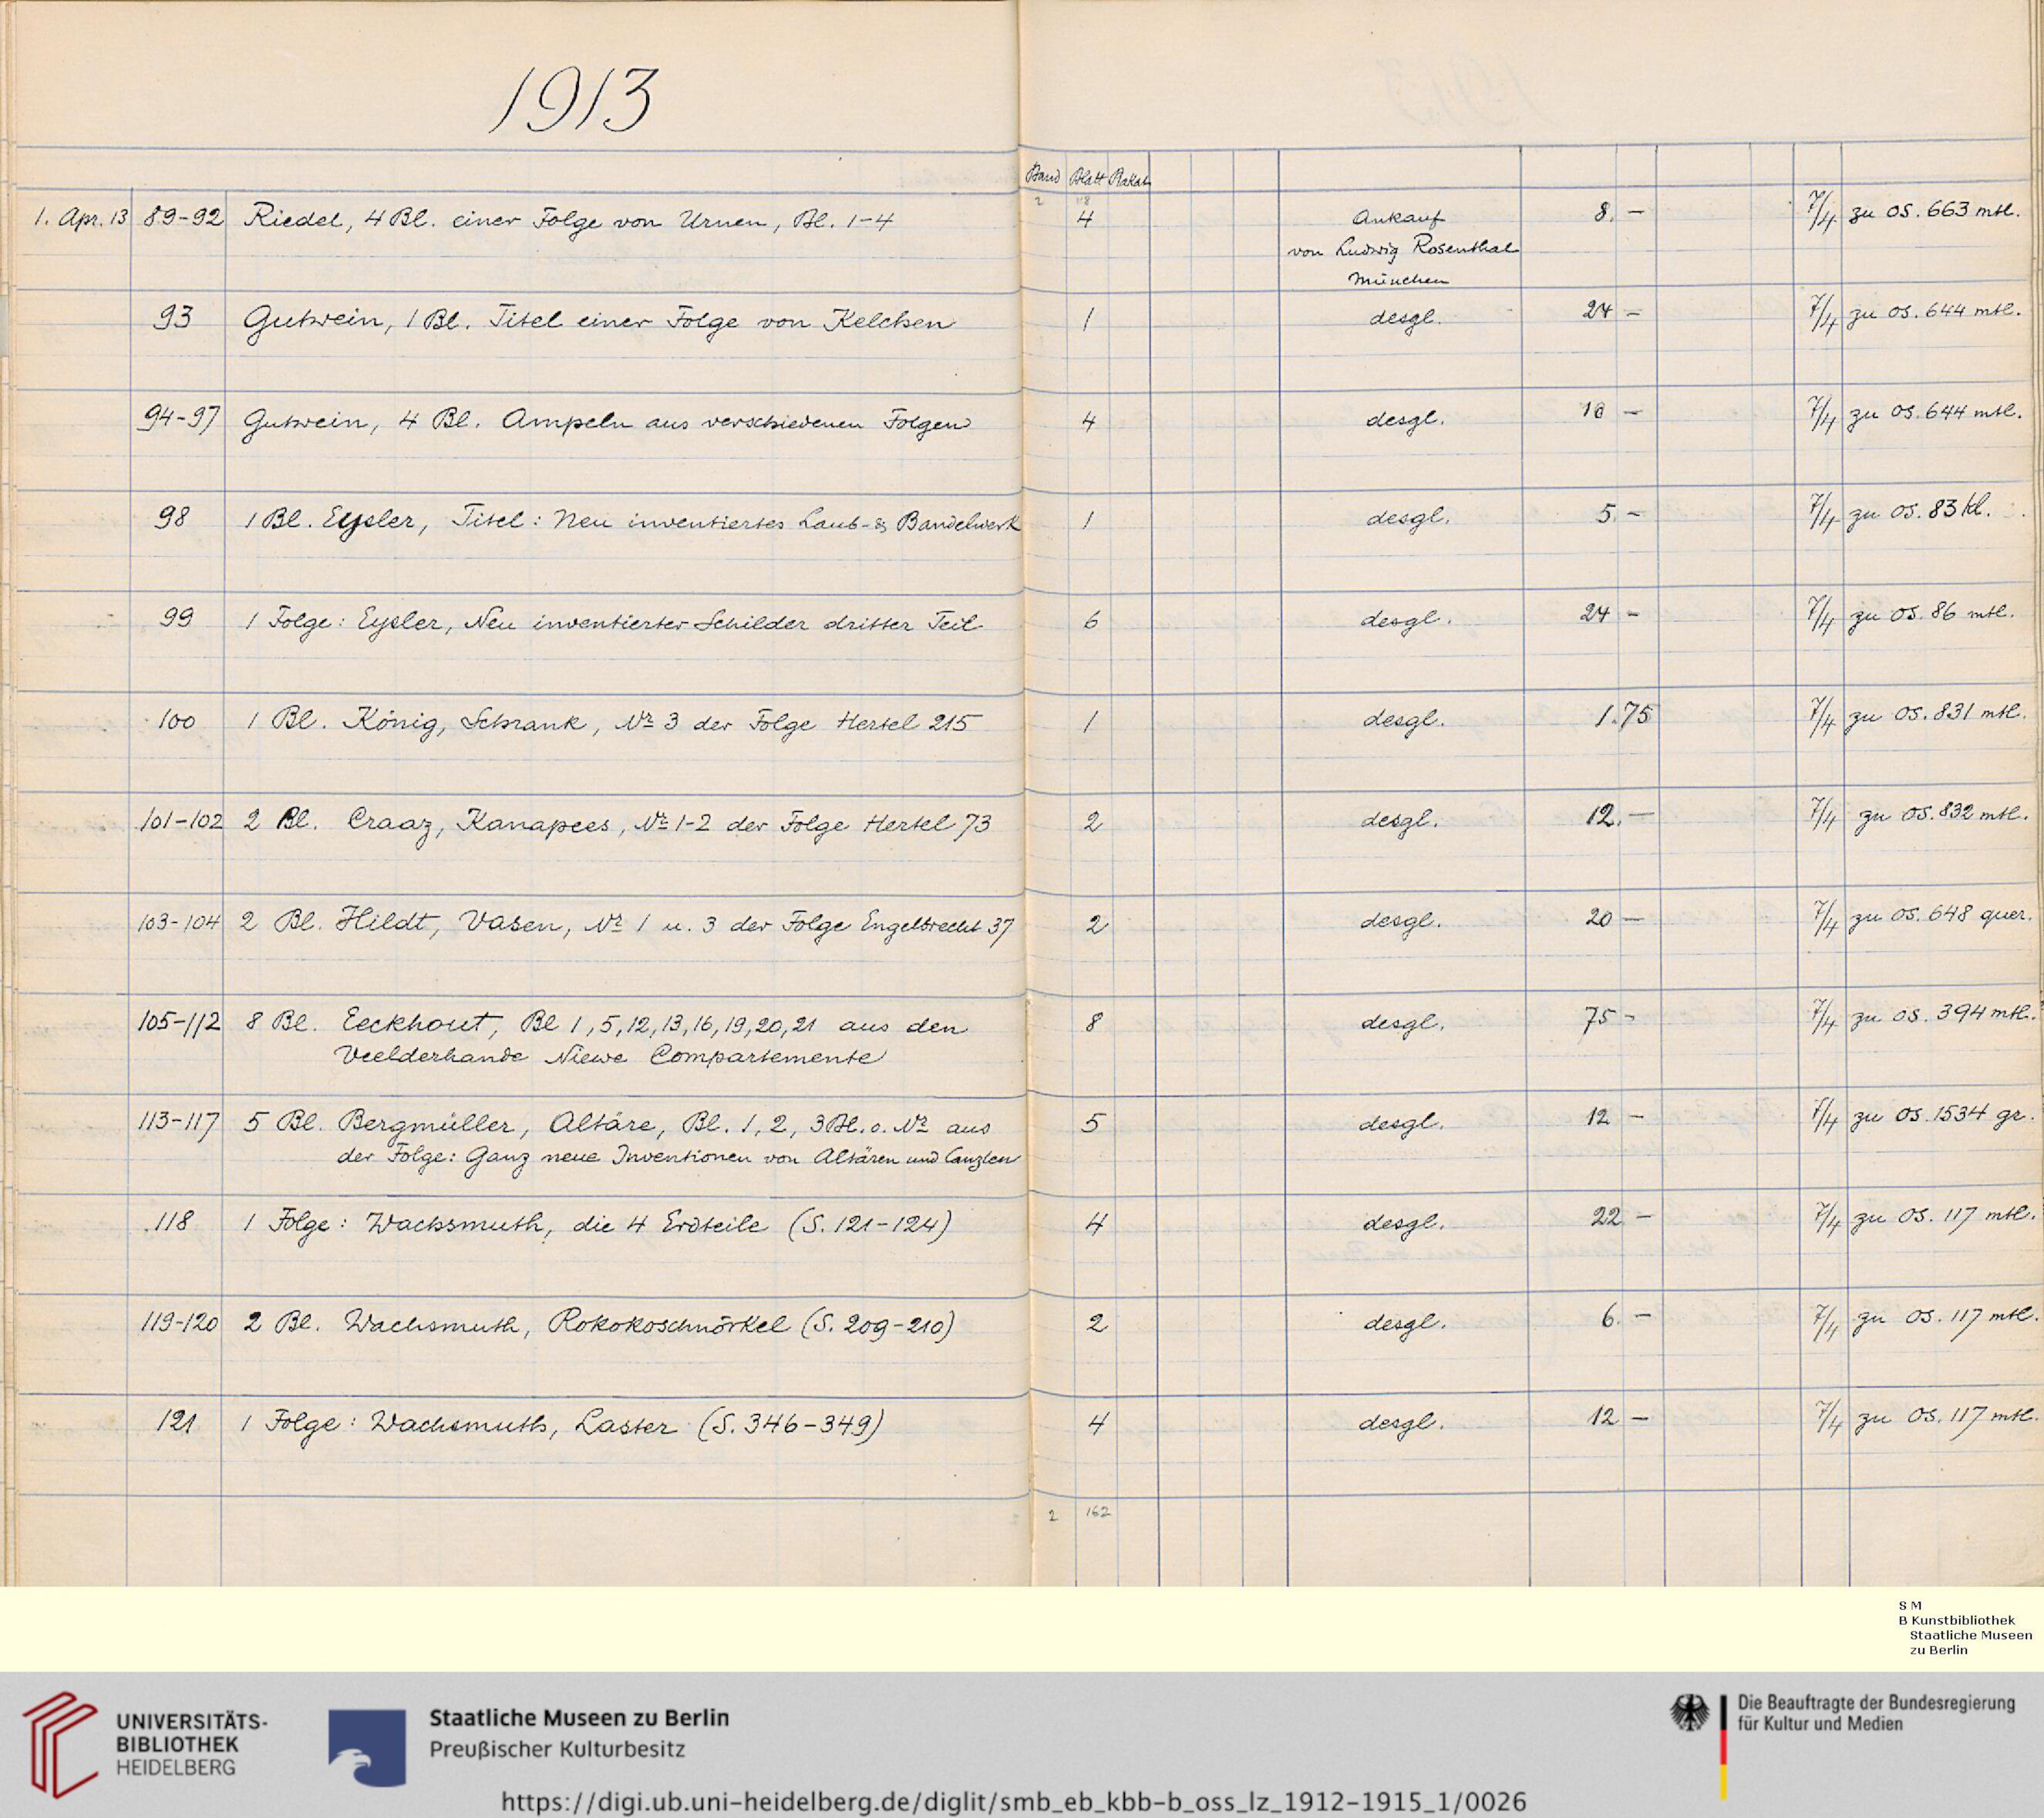 1913
Band Blatt Plakat
2 118
1. Apr. 13 89-92 Riedel, 4 Bl. einer Folge von Urnen, Bl. 1-4 4 Ankauf 8. - 7/4 zu OS. 663 mtl.
von Ludwig Rosenthal
München
93 Gutwein, 1 Bl. Titel einer Folge von Kelchen 1 desgl. 24 - 7/4 zu OS. 644 mtl.
94-97 Gutwein, 4 Bl. Ampeln aus verschiedenen Folgen 4 desgl. 18 - 7/4 zu OS. 644 mtl.
98 1 Bl. Eysler, Titel: Neu inventiertes Laub- & Bandelwerk 1 desgl. 5. - 7/4 zu OS. 83 kl.
99 1 Folge: Eysler, Neu inventierter Schilder dritter Teil 6 desgl. 24 - 7/4 zu OS. 86 mtl.
100 1 Bl. König, Schrank, Nr 3 der Folge Hertel 215 1 desgl. 1.75 7/4 zu OS. 831 mtl.
101-102 2 Bl. Craaz, Kanapees, Nr 1-2 der Folge Hertel 73 2 desgl. 12. - 7/4 zu OS. 832 mtl.
103-104 2 Bl. Hildt, Vasen, Nr 1 u. 3 der Folge Engelbrecht 37 2 desgl. 20 - 7/4 zu OS. 648 quer.
105-112 8 Bl. Eeckhout, Bl 1, 5, 12, 13, 16, 19, 20, 21 aus den 8 desgl. 75 - 7/4 zu OS. 394 mtl.
Veelderhande Niewe Compartemente
113-117 5 Bl. Bergmüller, Altäre, Bl. 1, 2, 3 Bl. o. Nr aus 5 desgl. 12 - 7/4 zu OS. 1534 gr.
der Folge: Ganz neue Inventionen von Altären und Canzlen
118 1 Folge: Wachsmuth, die 4 Erdteile (S. 121-124) 4 desgl. 22 - 7/4 zu OS. 117 mtl.
119-120 2 Bl. Wachsmuth, Rokokoschnörkel (S. 209-210) 2 desgl. 6. - 7/4 zu OS. 117 mtl.
121 1 Folge: Wachsmuth, Laster (S. 346-349) 4 desgl. 12 - 7/4 zu OS. 117 mtl.
2 162
S M
B Kunstbibliothek
Staatliche Museen
zu Berlin
UNIVERSITÄTS-
BIBLIOTHEK
HEIDELBERG
Staatliche Museen zu Berlin
Preußischer Kulturbesitz
Die Beauftragte der Bundesregierung
für Kultur und Medien
https://digi.ub.uni-heidelberg.de/diglit/smb_eb_kbb-b_oss_lz_1912-1915_1/0026